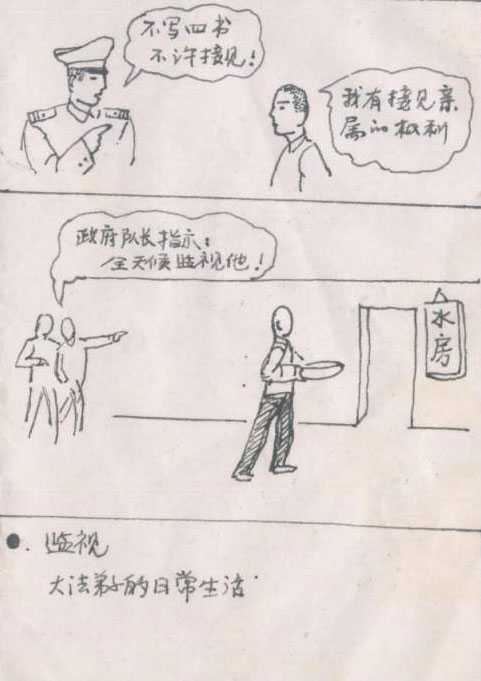 不写四书
不许接见！
我有接见亲
属的权利
政府队长指示：
全天候监视他！
水房
●. 监视
大法弟子的日常生活